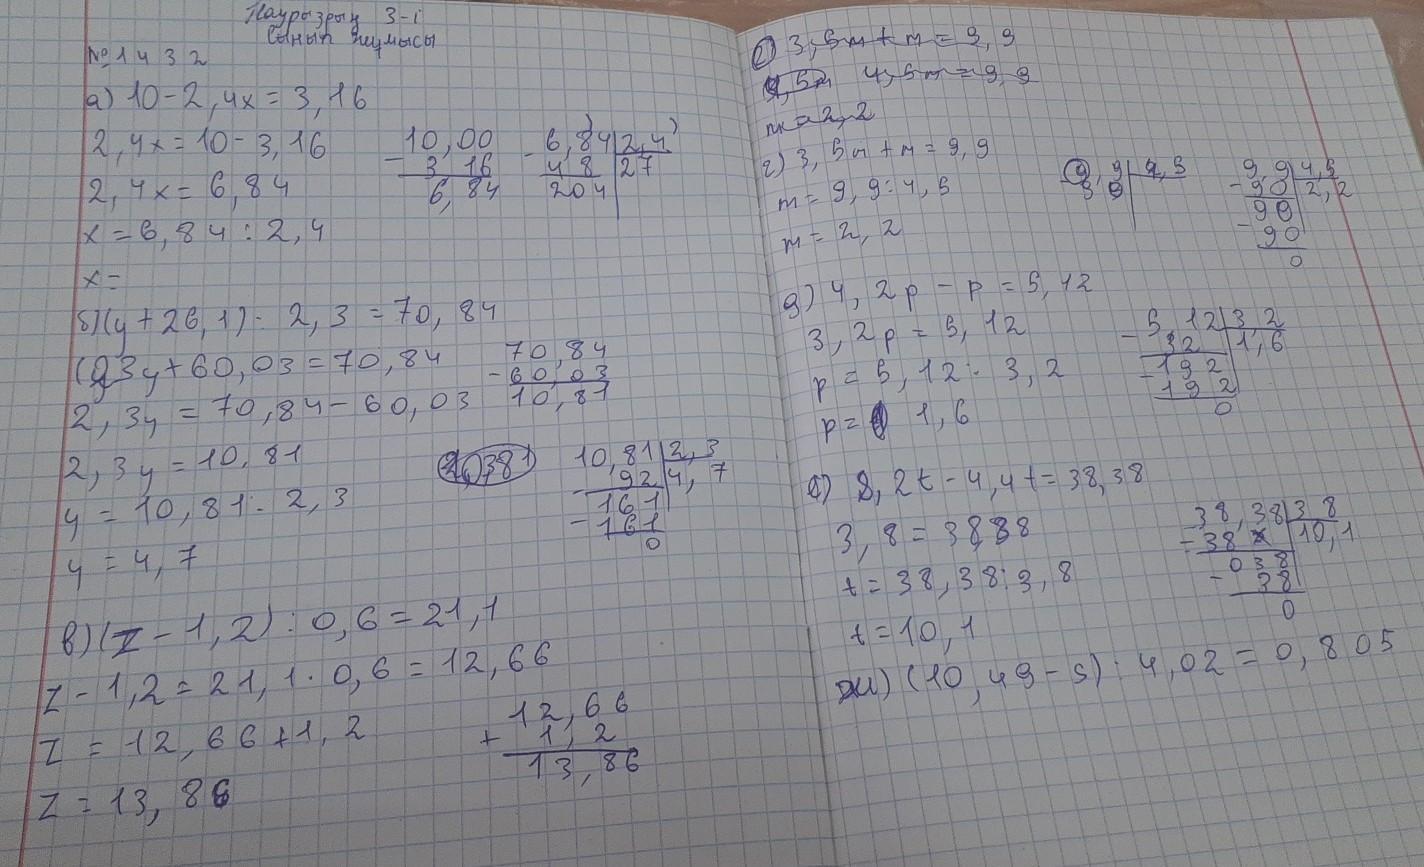 Наурыздың 3-і
Сынып жұмысы
№1432
а) 10-2,4x=3,16
2,4x=10-3,16
10,00
- 3 16
6,84
- 6,84 | 2,4
4 8 | 27
204
2,4x=6,84
x=6,84:2,4
x=
б) (y+26,1)· 2,3=70,84
(2,3y+60,03=70,84
70,84
-60,03
10,81
2,3y=70,84-60,03
2,3y=10,81
10,81 | 2,3
- 92 | 4,7
161
- 161
0
y=10,81:2,3
y=4,7
в) (z-1,2):0,6=21,1
z-1,2=21,1·0,6=12,66
z=12,66+1,2
12,66
+ 1,2
13,86
z=13,86
3,5m+m=9,9
4,5m=9,9
m=2,2
г) 3,5m+m=9,9
m=9,9:4,5
9,9 | 4,5
- 90 | 2,2
90
- 90
0
m=2,2
д) 4,2p-p=5,12
3,2p=5,12
- 5,12 | 3 2
32 | 1,6
192
- 192
0
p=5,12:3,2
p= 1,6
е) 8,2t-4,4t=38,38
3,8=38,38
38,38 | 3 8
- 38 | 10,1
038
- 38
0
t=38,38:3,8
t=10,1
ж) (10,49-s):4,02=0,805